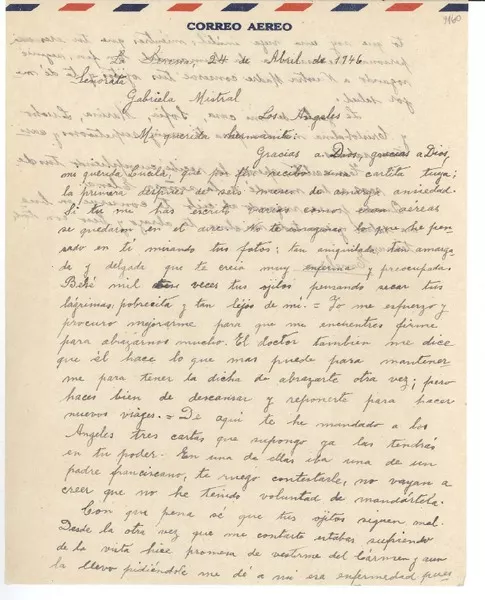 CORREO AEREO
La Serena, 24 de Abril de 1946.
Señorita
Gabriela Mistral
Los Angeles
Mi querida hermanita:
Gracias a Dios, gracias a Dios,
mi querida Lucila, que por fin recibo una cartita tuya;
la primera después de seis meses de amarga ansiedad.
Si tu me has escrito varias como esas aéreas
se quedaron en el aire. No te imaginas lo que he pen
sado en ti mirando tus fotos; tan aniquilada tan amarga
da y delgada que te creia muy enferma y preocupada
Besé mil veces tus ojitos pensando secar tus
lágrimas, pobrecita y tan lejos de mi. = Yo me esfuerzo y
procuro mejorarme para que me encuentres firme
para abrazarnos mucho. El doctor tambien me dice
que él hace lo que mas puede para mantener
me para tener la dicha de abrazarte otra vez; pero
haces bien de descansar y reponerte para hacer
nuevos viages. = De aqui te he mandado a los
Angeles tres cartas que supongo ya las tendrás
en tu poder. En una de ellas iba una de un
padre franciscano, te ruego contestarle, no vayan a
creer que no he tenido voluntad de mandártela.
Con que pena sé que tus ojitos siguen mal.
Desde la otra vez que me contaste estabas sufriendo
de la vista hice promesa de vestirme del Cármen y aun
la llevo pidiéndole me dé a mi esa enfermedad pues